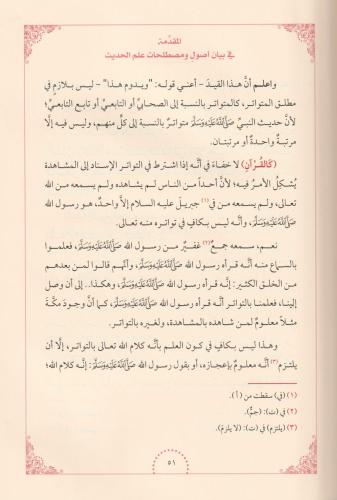 المقدَّمة
في بيان أصول ومصطلحات علم الحديث
واعلم أنَّ هذا القيدَ - أعني قوله: "ويدوم هذا" - ليس بلازم في
مطلق المتواتر، كالمتواتر بالنسبة إلى الصحابيِّ أو التابعيِّ أو تابع التابعيِّ؛
لأنَّ حديث النبيِّ صَلَّى اللهُ عَلَيْهِ وَسَلَّمَ متواترٌ بالنسبة إلى كلٍّ منهم، وليس فيه إلَّا
مرتبةٌ واحدةٌ أو مرتبتان.
(كَالقُرآنِ) لا خفاءَ في أنَّه إذا اشترط في التواتر الإسناد إلى المشاهدة
يُشكِلُ الأمرُ فيه؛ لأنَّ أحداً من الناس لم يشاهده ولم يسمعه من الله
تعالى، ولم يسمعه من في(١) جبريلَ عليه السلام إلَّا واحدٌ، هو رسول الله
صَلَّى اللهُ عَلَيْهِ وَسَلَّمَ، وأنَّه ليس بكافٍ في تواتره منه تعالى.
نعم، سمعه جمعٌ(٢) غفيرٌ من رسول الله صَلَّى اللهُ عَلَيْهِ وَسَلَّمَ، فعلموا
بالسماع منه أنَّه قرأه رسول الله صَلَّى اللهُ عَلَيْهِ وَسَلَّمَ، وأنَّهم قالوا لمن بعدهم
من الخلق الكثير: إنَّه قرأه رسول الله صَلَّى اللهُ عَلَيْهِ وَسَلَّمَ، وهكذا.. إلى أن وصل
إلينا، فعلمنا بالتواتر أنَّه قرأه رسول الله صَلَّى اللهُ عَلَيْهِ وَسَلَّمَ، كما أنَّ وجودَ مكَّةَ
مثلاً معلومٌ لمن شاهده بالمشاهدة، ولغيره بالتواتر.
وهذا ليس بكافٍ في كون العلم بأنَّه كلام الله تعالى بالتواتر، إلَّا أن
يلتزمَ(٣) أنَّه معلومٌ بإعجازه، أو بقول رسول الله صَلَّى اللهُ عَلَيْهِ وَسَلَّمَ: إنَّه كلام الله؛
(١) (في) سقطت من (أ).
(٢) في (ت): (جمٌّ).
(٣) (يلتزم) في (ت): (لا يلزم).
٥١